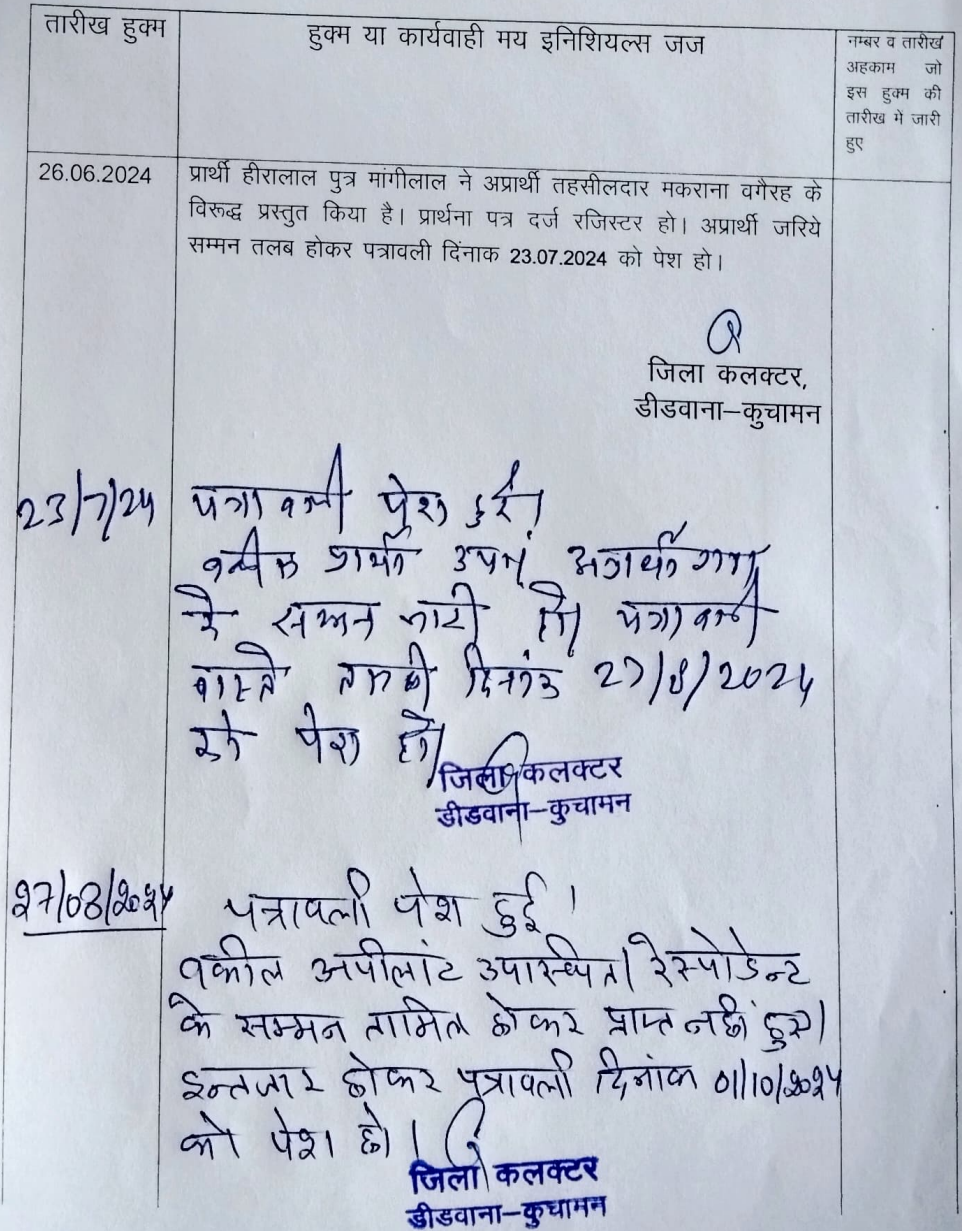 तारीख हुक्म
हुक्म या कार्यवाही मय इनिशियल्स जज
नम्बर व तारीख
अहकाम जो
इस हुक्म की
तारीख में जारी
हुए
26.06.2024
प्रार्थी हीरालाल पुत्र मांगीलाल ने अप्रार्थी तहसीलदार मकराना वगैरह के
विरूद्ध प्रस्तुत किया है। प्रार्थना पत्र दर्ज रजिस्टर हो। अप्रार्थी जरिये
सम्मन तलब होकर पत्रावली दिंनाक 23.07.2024 को पेश हो।
जिला कलक्टर,
डीडवाना–कुचामन
23/7/24
पत्रावली पेश हुई।
वकील प्रार्थी उप० अप्रार्थीगण
के सम्मन जारी हो। पत्रावली
वास्ते तलबी दिनांक 27/8/2024
को पेश हो।
जिला कलक्टर
डीडवाना–कुचामन
27/08/2024
पत्रावली पेश हुई।
वकील अपीलांट उपास्थित। रेस्पोडेन्ट
के सम्मन तामिल होकर प्राप्त नहीं हुए।
इन्तजार होकर पत्रावली दिनांक 01/10/2024
को पेश हो।
जिला कलक्टर
डीडवाना–कुचामन